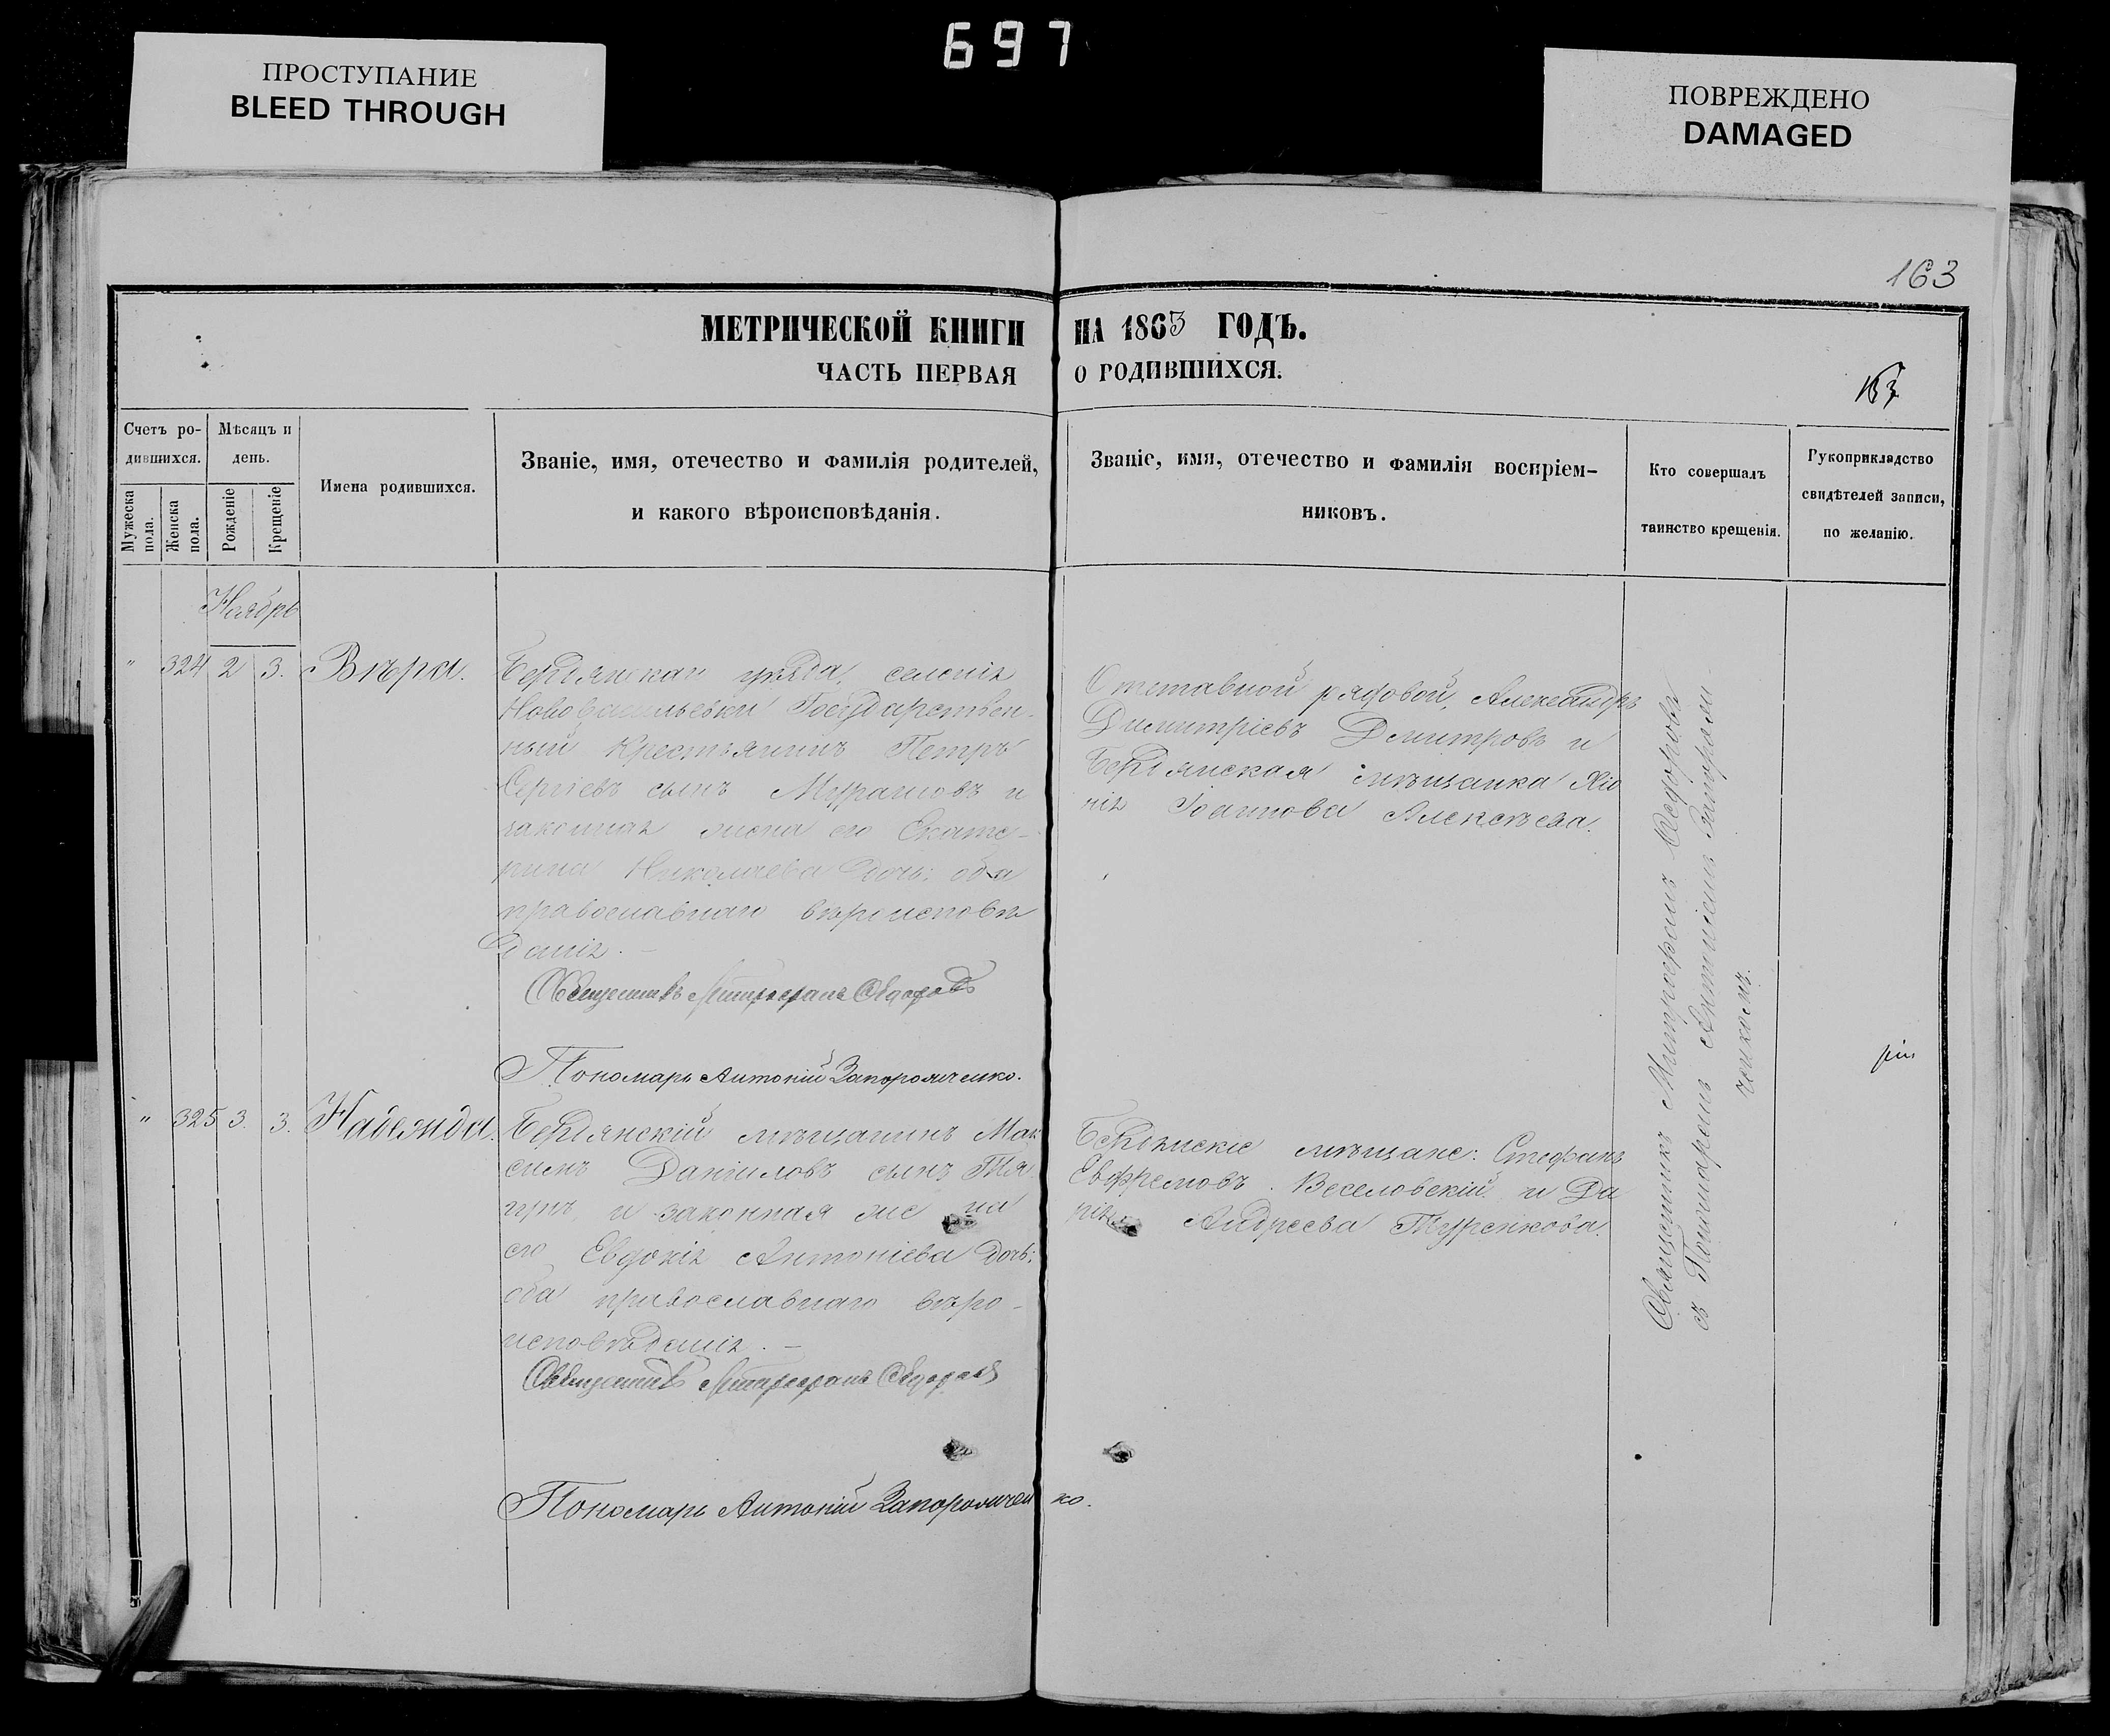 697
ПРОСТУПАНИЕ
BLEED THROUGH
ПОВРЕЖДЕНО
DAMAGED
163
МЕТРИЧЕСКОЙ КНИГИ НА 1863 ГОДЪ.
ЧАСТЬ ПЕРВАЯ О РОДИВШИХСЯ.
Счетъ ро-
дившихся.
Мужеска пола.
Женска пола.
Мѣсяцъ и
день.
Рожденіе
Крещеніе
Имена родившихся.
Званіе, имя, отечество и фамилія родителей,
и какого вѣроисповѣданія.
Званіе, имя, отечество и фамилія воспріем-
никовъ.
Кто совершалъ
таинство крещенія.
Рукоприкладство
свидѣтелей записи,
по желанію.
Ноябрь
" 324 2 3. Вѣра.
Бердянскаго уѣзда, селенія
Нововасильевки Государствен-
ный Крестьянинъ Петръ
Сергіевъ сынъ Мурашовъ и
законная жена его Екате-
рина Николаева дочь: оба
православнаго вѣроисповѣ
данія. –
Священникъ Митрофанъ Ѳедоровъ
Пономарь Антоній Запорожченко.
Отставной рядовой, Александръ
Димитріевъ Дмитровъ и
Бердянская мѣщанка Хіо
нія Іоаннова Алексѣева.
" 325 3. 3. Надежда.
Бердянскій мѣщанинъ Мак
симъ Даніиловъ сынъ
и законная же на
его Евдокія Антоніева дочь:
оба православнаго вѣро-
исповѣданія. –
Священникъ Митрофанъ Ѳедоровъ
Пономарь Антоній Запорожченко.
Бердянскіе мѣщане: Стефанъ
Евфремовъ Веселовскій и Да
рія Андреева Туренкова.
Священникъ Митрофанъ Ѳедоровъ
съ Пономаремъ Антоніемъ Запорож-
ченкомъ.